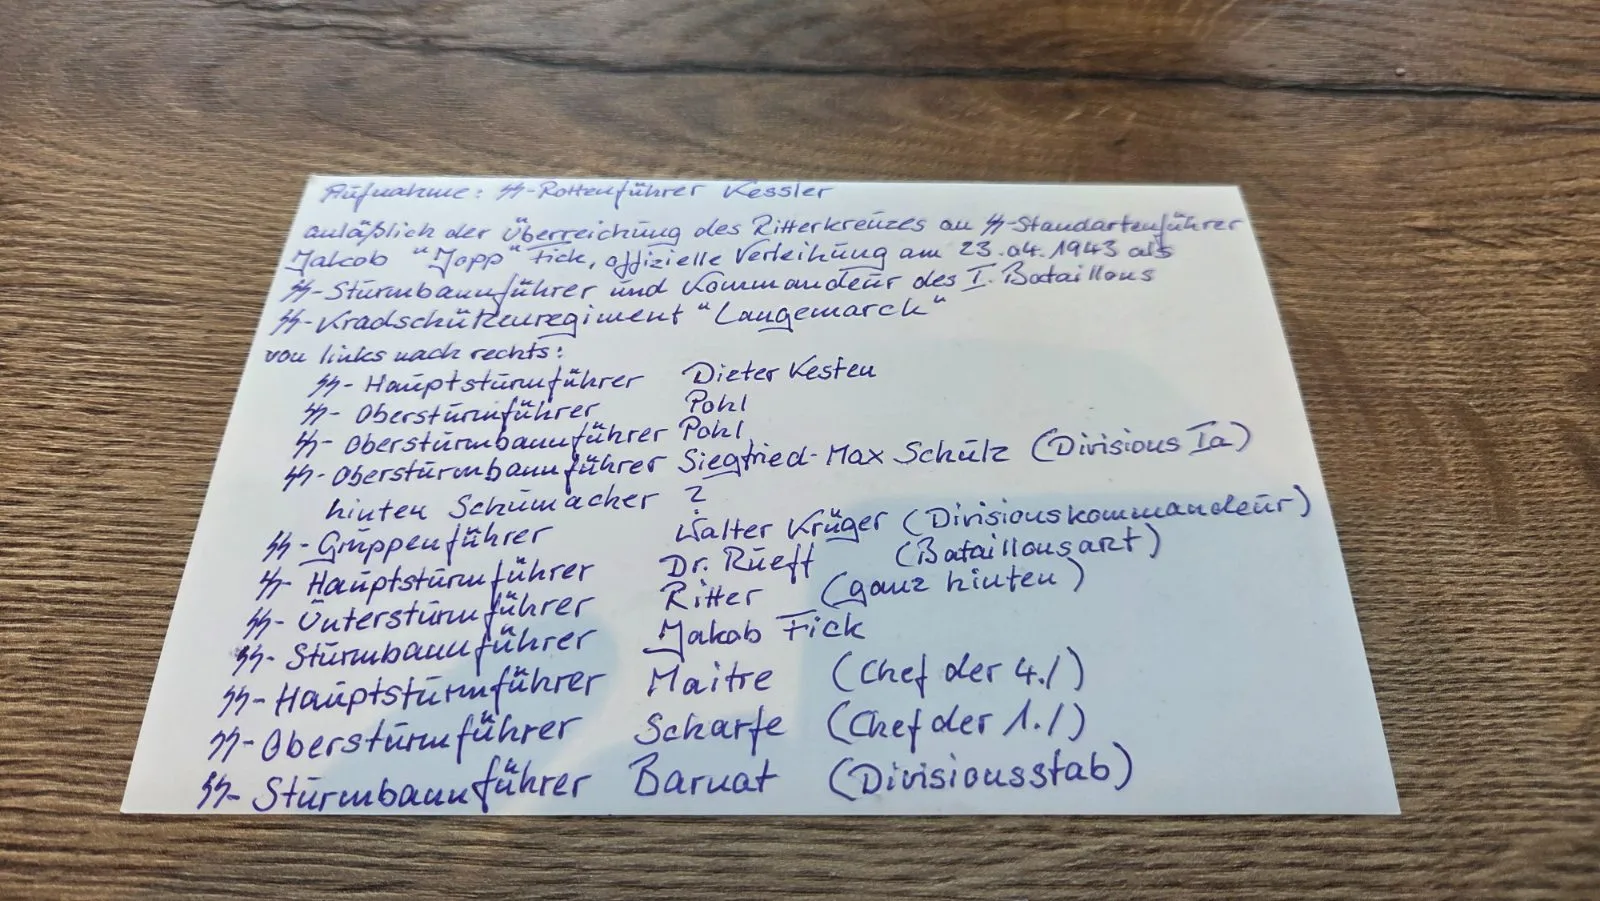 Aufnahme: SS-Rottenführer Kessler
anläßlich der Überreichung des Ritterkreuzes an SS-Standartenführer
Jakob "Jopp" Fick, offizielle Verleihung am 23.04.1943 als
SS-Sturmbannführer und Kommandeur des I. Bataillons
SS-Kradschützenregiment "Langemarck"
von links nach rechts:
SS-Hauptsturmführer Dieter Kesten
SS-Obersturmführer Pohl
SS-Obersturmbannführer Pohl
SS-Obersturmbannführer Siegfried-Max Schulz (Divisions Ia)
hinten Schumacher ?
SS-Gruppenführer Walter Krüger (Divisionskommandeur)
SS-Hauptsturmführer Dr. Rueff (Bataillonsarzt)
SS-Untersturmführer Ritter (ganz hinten)
SS-Sturmbannführer Jakob Fick
SS-Hauptsturmführer Maitre (Chef der 4./)
SS-Obersturmführer Scharfe (Chef der 1./)
SS-Sturmbannführer Barnat (Divisionsstab)